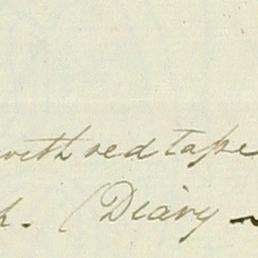 with red tape
h. (Diary